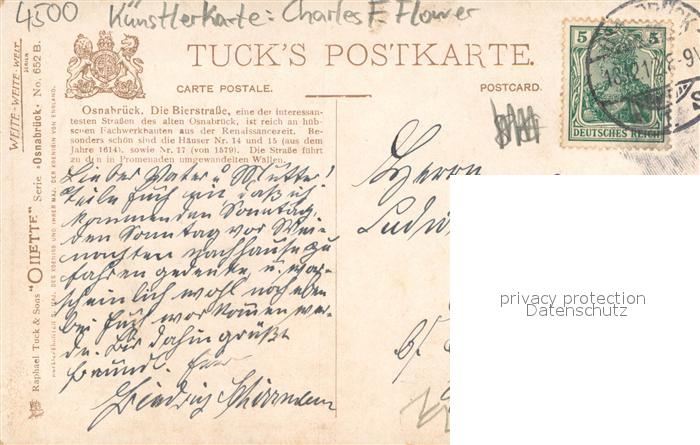 4500 Künstlerkarte: Charles F. Flower
TUCK'S POSTKARTE.
CARTE POSTALE.
POSTCARD.
5 5
DEUTSCHES REICH
WEITE-WEITE-WELT
Raphael Tuck & Sons "OILETTE" Serie "Osnabrück" No. 652 B.
Osnabrück. Die Bierstraße, eine der interessan-
testen Straßen des alten Osnabrück, ist reich an hüb-
schen Fachwerkbauten aus der Renaissancezeit. Be-
sonders schön sind die Häuser Nr. 14 und 15 (aus dem
Jahre 1614), sowie Nr. 17 (von 1579). Die Straße führt
zu den in Promenaden umgewandelten Wällen.
Lieber Vater u Mutter!
Teile Euch mit daß ich
kommenden Sonntag,
den Sonntag vor Wei-
nachten nachhause zu
fahren gedenke, u. war-
scheinlich wohl noch eben
bei Euch vorkommen wer-
de. Bis dahin grüßt
freundl. Euer
Herrn
Ludw
privacy protection
Datenschutz